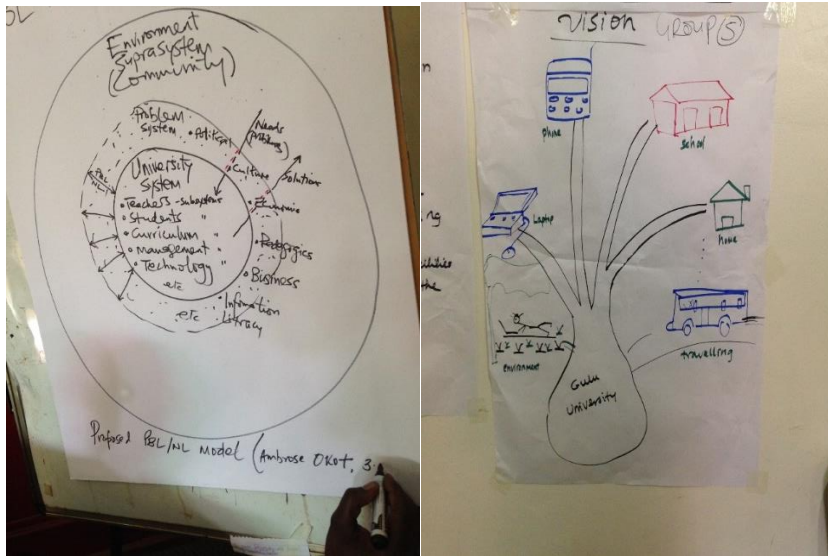 OL
Environment
Suprasystem
(Community)
Problem
System
• Political
Needs
(problems)
• Culture
Solution
University
System
PBL
NL
• Teachers - subsystems
• Students "
• Curriculum "
• Management "
• Technology "
etc
• Economic
• Pedagogics
• Business
• Information
Literacy
etc
Proposed PBL/NL Model (Ambrose Okot, 3
Vision GROUP (5)
phone
school
Laptop
home
environment
travelling
Gulu
University
n
ng
the